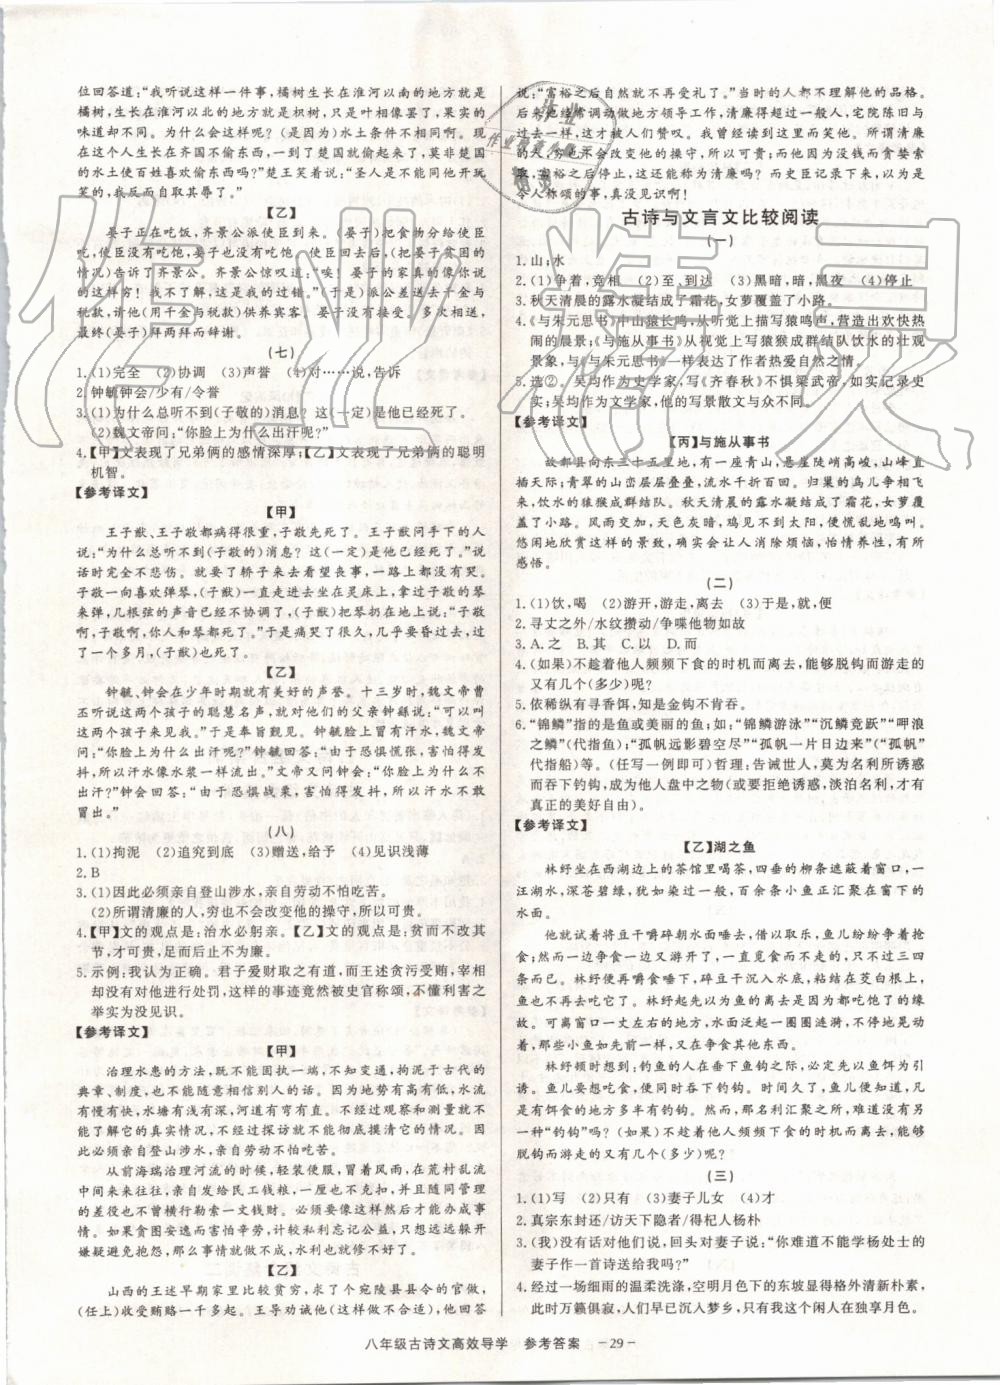 位回答道：“我听说这样一件事，橘树生长在淮河以南的地方就是
橘树，生长在淮河以北的地方就是枳树，只是叶相像罢了，果实的
味道却不同。为什么会这样呢？（是因为）水土条件不相同啊。现
在这个人生长在齐国不偷东西，一到了楚国就偷起来了，莫非楚国
的水土使百姓喜欢偷东西吗？”楚王笑着说：“圣人是不能同他开玩
笑的，我反而自取其辱了。”
【乙】
晏子正在吃饭，齐景公派使臣到来。（晏子）把食物分给使臣
吃，使臣没有吃饱，晏子也没有吃饱。使臣回去后，（把晏子贫困
的情况）告诉了齐景公。齐景公惊叹道：“唉！晏子的家真的像你说
的这样穷！我不了解，这是我的过错。”（于是）派公差送去千金与
税款，请他（用千金与税款）供养宾客。晏子没有接受。多次相送，
最终（晏子）拜两拜而辞谢。
（七）
1. （1）完全 （2）协调 （3）声誉 （4）对……说，告诉
2. 钟毓钟会/少有/令誉
3. （1）为什么总听不到（子敬的）消息？这（一定）是他已经死了。
（2）魏文帝问：“你脸上为什么出汗呢？”
4. 【甲】文表现了兄弟俩的感情深厚；【乙】文表现了兄弟俩的聪明
机智。
【参考译文】
【甲】
王子猷、王子敬都病得很重，子敬先死了。王子猷问手下的人
说：“为什么总听不到（子敬的）消息？这（一定）是他已经死了。”说
话时完全不悲伤。就要了轿子来去看望丧事，一路上都没有哭。
子敬一向喜欢弹琴，（子猷）一直走进去坐在灵床上，拿过子敬的琴
来弹，几根弦的声音已经不协调了，（子猷）把琴扔在地上说：“子敬
啊，子敬啊，你人和琴都死了。”于是痛哭了很久，几乎要昏过去，过
了一个多月，（子猷）也死了。
【乙】
钟毓、钟会在少年时期就有美好的声誉。十三岁时，魏文帝曹
丕听说这两个孩子的聪慧名声，就对他们的父亲钟繇说：“可以叫
这两个孩子来见我。”于是奉旨觐见。钟毓脸上冒有汗水，魏文帝
问：“你脸上为什么出汗呢？”钟毓回答：“由于恐惧慌张，害怕得发
抖，所以汗水像水浆一样流出。”文帝又问钟会：“你脸上为什么不
出汗？”钟会回答：“由于恐惧战栗，害怕得发抖，所以汗水也不敢冒
出。”
（八）
1. （1）拘泥 （2）追究到底 （3）赠送，给予 （4）见识浅薄
2. B
3. （1）因此必须亲自登山涉水，亲自劳动不怕吃苦。
（2）所谓清廉的人，穷也不会改变他的操守，所以可贵。
4. 【甲】文的观点是：治水必躬亲。【乙】文的观点是：贫而不改其
节，才可贵，足而后止不为廉。
5. 示例：我认为正确。君子爱财取之有道，而王述贪污受贿，宰相
却没有对他进行处罚，这样的事迹竟然被史官称颂，不懂利害之
举实为没见识。
【参考译文】
【甲】
治理水患的方法，既不能固执一端，不知变动，拘泥于古代的
典章、制度，也不能随意相信别人的话。因为地势有高有低，水流
有慢有快，水塘有浅有深，河道有弯有直。不经过观察和测量就不
了解它的真实情况，不经过探访就不能彻底摸清它的情况。因
此必须亲自登山涉水，亲自劳动不怕吃苦。
从前海瑞治理河流的时候，轻装便服，冒着风雨，在荒村乱流
中间来来往往，亲自发给民工钱粮，一厘也不克扣，而随同管理
的差役也不曾横行勒索一文钱财。必须要像这样才能办成事
情。如果贪图安逸而害怕辛劳，计较私利忘记公益，只想远远躲开
嫌疑避免抱怨，那么事情就不能办成，水利也就修不好。
【乙】
山西的王述早期家里比较贫穷，求了个宛陵县县令的官做，
（任上）收受贿赂一千多起。王导劝诫他（这样做不合适），他回答
说：“富裕之后自然就不再受礼了。”当时的人都不理解他的品格。
后来他继续调动做地方领导工作，清廉超过一般人，宅院陈旧与
过去一样，这才被人们赞叹。我曾经读到这里而笑他。所谓清廉
的人，穷也不会改变他的操守，所以可贵。他因为没钱而贪婪索
取，富裕之后停止，这还能称为清廉吗？而史臣记录下来，以为是
令人称颂的事，真没见识啊！
古诗与文言文比较阅读
（一）
1. 山；水
2. （1）争着，竞相 （2）至，到达 （3）黑暗，暗，黑夜 （4）停止
3. 秋天清晨的露水凝结成了霜花，女萝覆盖了小路。
4. 《与朱元思书》中山猿长鸣，从听觉上描写猿鸣声，营造出欢快热
闹的晨景；《与施从事书》从视觉上写猿猴成群结队饮水的壮观
景象，与《与朱元思书》一样表达了作者热爱自然之情。
5. 选②，吴均作为史学家，写《齐春秋》不惧梁武帝，如实记录历
史；吴均作为文学家，他的写景散文与众不同。
【参考译文】
【丙】与施从事书
故鄣县向东三十五里地，有一座青山，悬崖陡峭高峻，山峰直
插天际；青翠的山峦层层叠叠，流水千折百回。归巢的鸟儿争相飞
来，饮水的猿猴成群结队。秋天清晨的露水凝结成了霜花，女萝覆
盖了小路。风雨交加，天色灰暗，鸡见不到太阳，便慌乱地鸣叫。
悠闲地欣赏这样的景致，确实会让人消除烦恼，怡情养性，有所
感悟。
（二）
1. （1）饮，喝 （2）游开，游走，离去 （3）于是，就，便
2. 寻丈之外/水纹攒动/争喋他物如故
3. A. 之 B. 其 C. 以 D. 而
4. （如果）不趁着他人频频下食的时机而离去，能够脱钩而游走的
又有几个（多少）呢？
5. 依稀纵有寻香饵，知是金钩不肯吞。
6. “锦鳞”指的是鱼或美丽的鱼；如：“锦鳞游泳”“沉鳞竞跃”“呷浪
之鳞”（代指鱼）；“孤帆远影碧空尽”“孤帆一片日边来”（“孤帆”
代指船）等。（任写一例即可）哲理：告诫世人，莫为名利所诱惑
而吞下钓钩，成为他人盘中之物（或要拒绝诱惑，淡泊名利，才有
真正的美好自由）。
【参考译文】
【乙】湖之鱼
林纾坐在西湖边上的茶馆里喝茶，四垂的柳条遮蔽着窗口，一
汪湖水，深苍碧绿，犹如染过一般，百余条小鱼正汇聚在窗下的
水面。
他就试着将豆干嚼碎朝水面唾去，借以取乐，鱼儿纷纷争着抢
食；然而一边争食一边又游开了，一直觅而不离开的只不过三四
条而已。林纾便再嚼食唾下去，碎豆干沉入水底，粘结在茭白根上，
鱼也不再去吃它了。林纾起先以为鱼的离去是因为都吃饱了的缘
故。可离窗口一丈左右的地方，水面泛起一圈圈涟漪，不停地晃动
着，那些小鱼如先前一样，在争食其他东西。
林纾顿时想到：钓鱼的人在垂下鱼钩之际，必定先以鱼饵为引
诱。鱼儿要想吃食，便同时吞下钓钩。时间久了，鱼儿便知道凡
是有饵食的地方多半有钓钩。然而，那名利汇聚之所，难道没有另
一种“钓钩”吗？（如果）不趁着他人频频下食的时机而离去，能够
脱钩而游走的又有几个（多少）呢？
（三）
1. （1）写 （2）只有 （3）妻子儿女 （4）才
2. 真宗东封还/访天下隐者/得杞人杨朴
3. （我）没有话对他们说，回头对妻子说：“你难道不能学杨处士的
妻子作一首诗送给我吗？”
4. 经过一场细雨的温柔洗涤，空明月色下的东坡显得格外清新朴素，
此时万籁俱寂，人们已深入梦乡，只有我这个闲人在独享月色。
八年级古诗文高效导学 参考答案 －29－